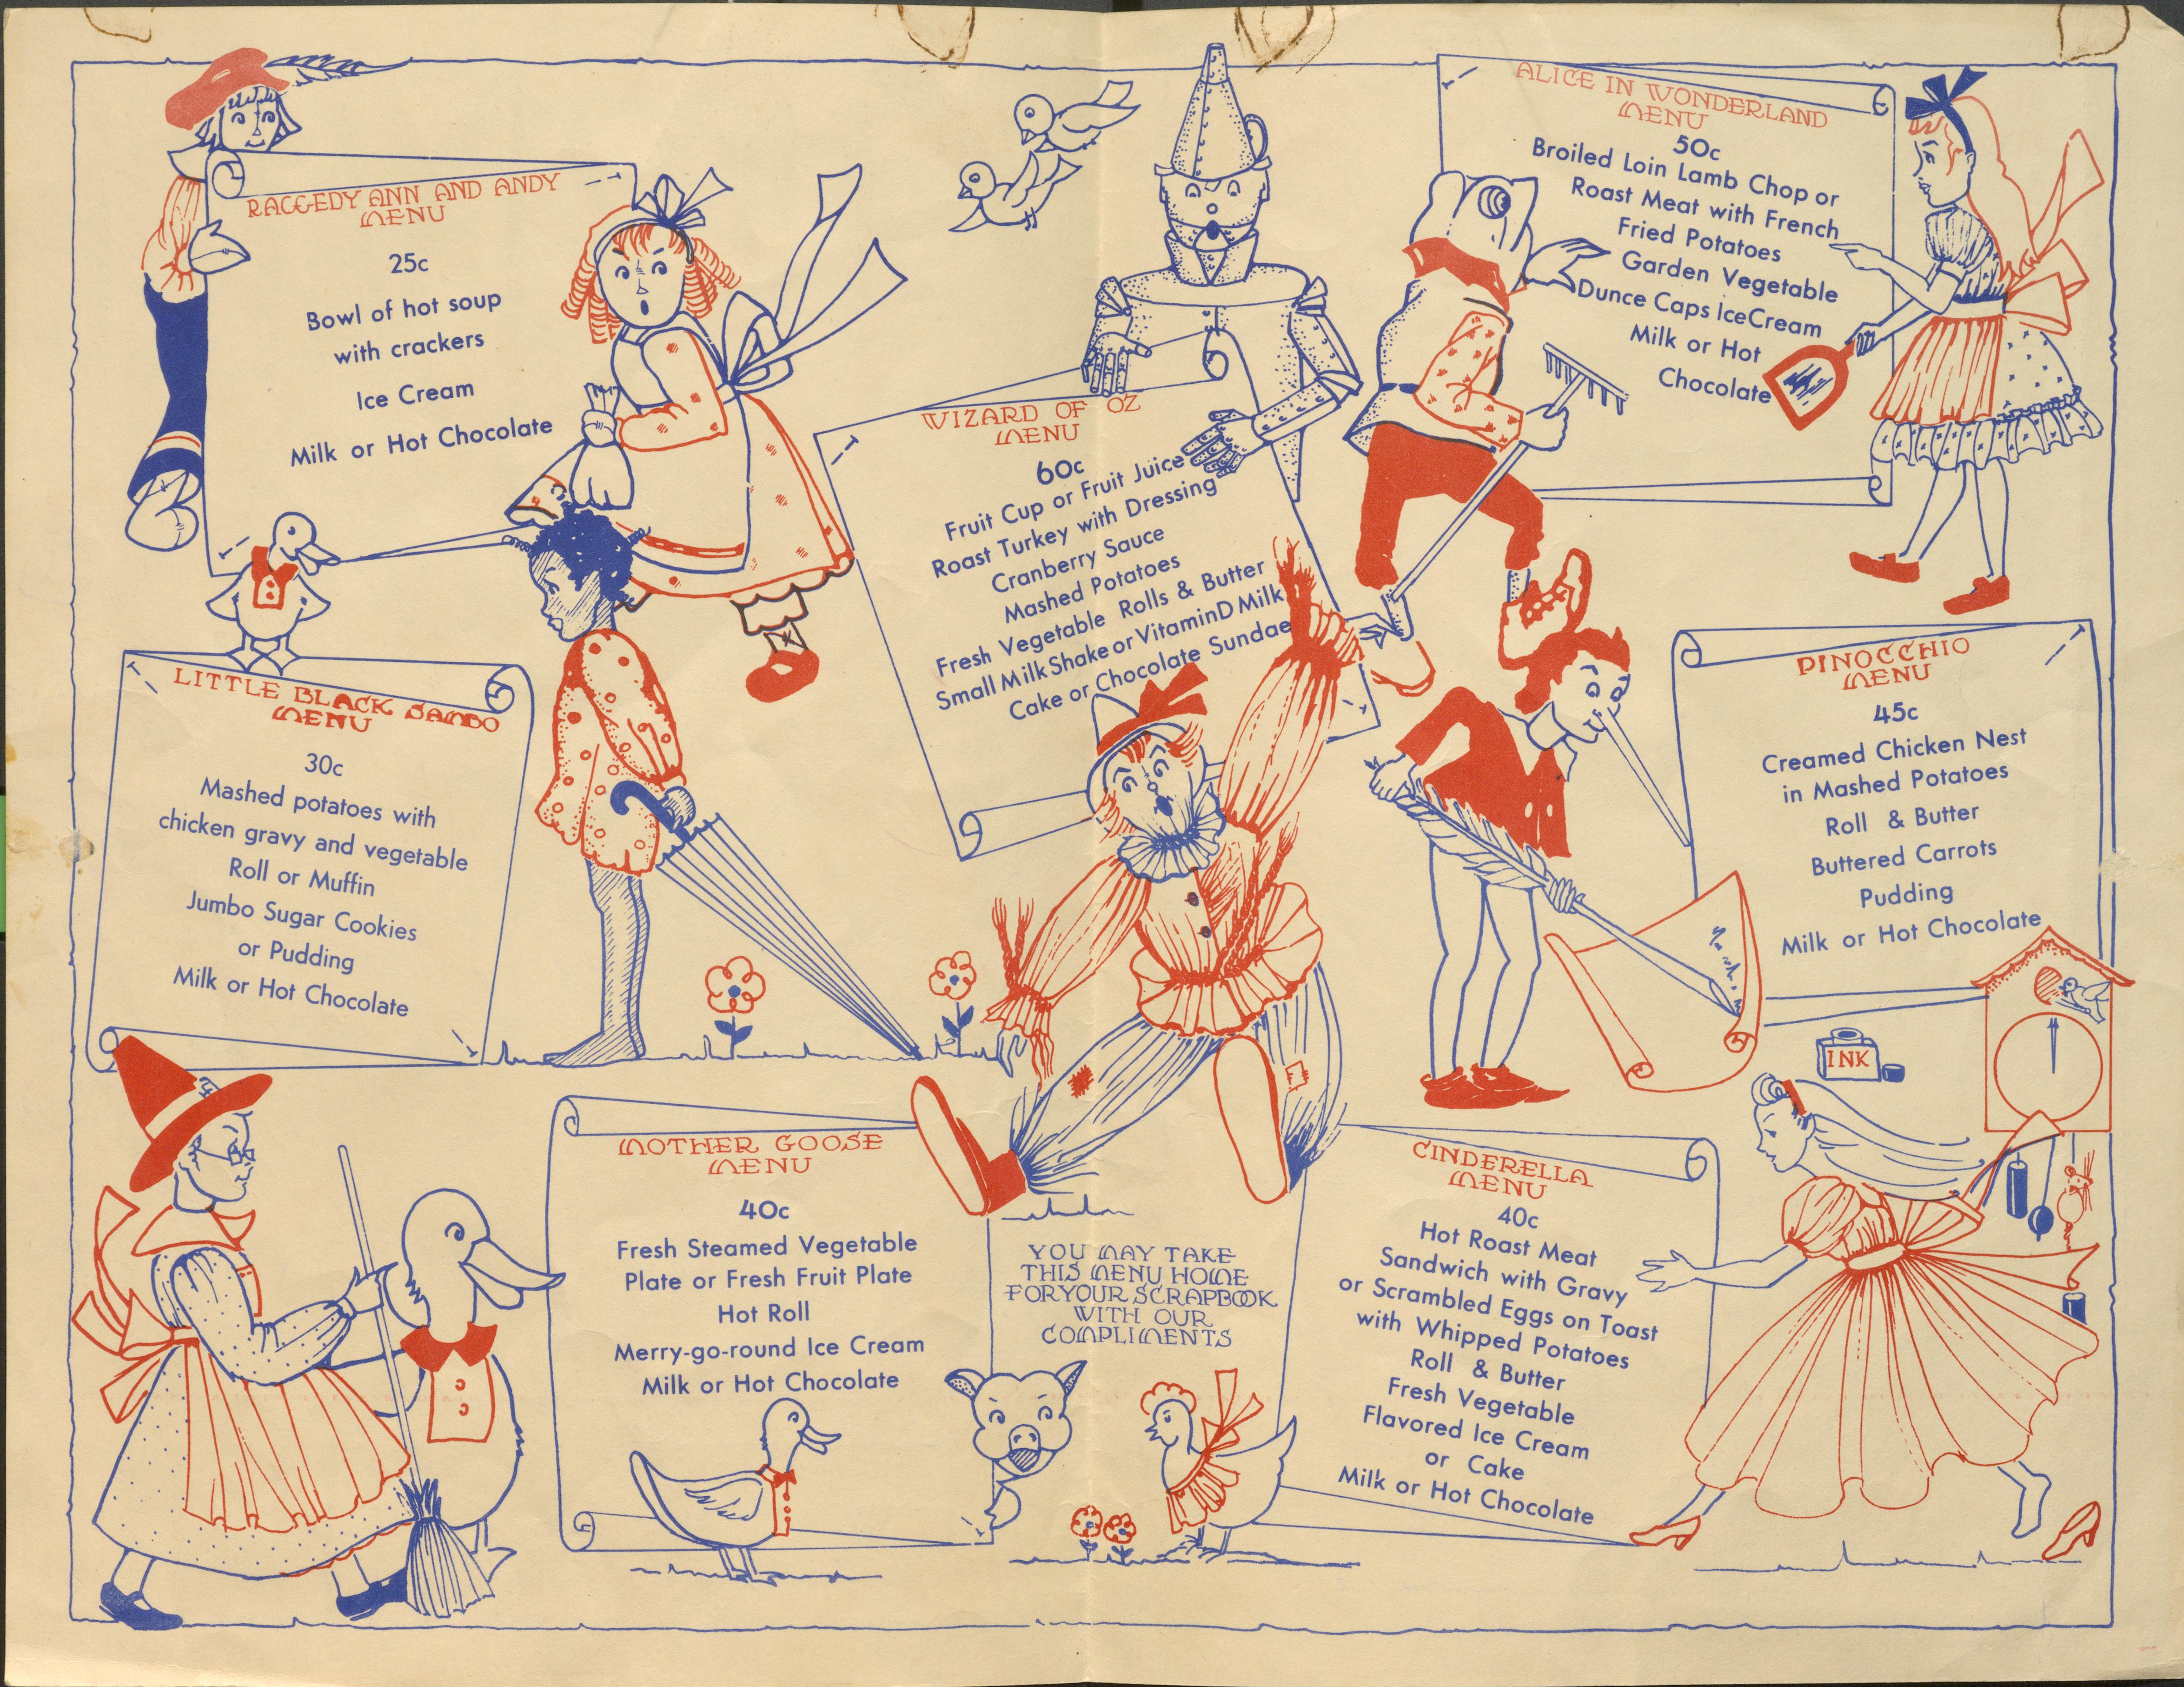 RAGGEDY ANN AND ANDY
MENU
25c
Bowl of hot soup
with crackers
Ice Cream
Milk or Hot Chocolate
LITTLE BLACK SAMBO
MENU
30c
Mashed potatoes with
chicken gravy and vegetable
Roll or Muffin
Jumbo Sugar Cookies
or Pudding
Milk or Hot Chocolate
MOTHER GOOSE
MENU
40c
Fresh Steamed Vegetable
Plate or Fresh Fruit Plate
Hot Roll
Merry-go-round Ice Cream
Milk or Hot Chocolate
WIZARD OF OZ
MENU
60c
Fruit Cup or Fruit Juice
Roast Turkey with Dressing
Cranberry Sauce
Mashed Potatoes
Fresh Vegetable Rolls & Butter
Small Milk Shake or Vitamin D Milk
Cake or Chocolate Sundae
YOU MAY TAKE
THIS MENU HOME
FOR YOUR SCRAPBOOK
WITH OUR
COMPLIMENTS
ALICE IN WONDERLAND
MENU
50c
Broiled Loin Lamb Chop or
Roast Meat with French
Fried Potatoes
Garden Vegetable
Dunce Caps Ice Cream
Milk or Hot
Chocolate
PINOCCHIO
MENU
45c
Creamed Chicken Nest
in Mashed Potatoes
Roll & Butter
Buttered Carrots
Pudding
Milk or Hot Chocolate
INK
CINDERELLA
MENU
40c
Hot Roast Meat
Sandwich with Gravy
or Scrambled Eggs on Toast
with Whipped Potatoes
Roll & Butter
Fresh Vegetable
Flavored Ice Cream
or Cake
Milk or Hot Chocolate